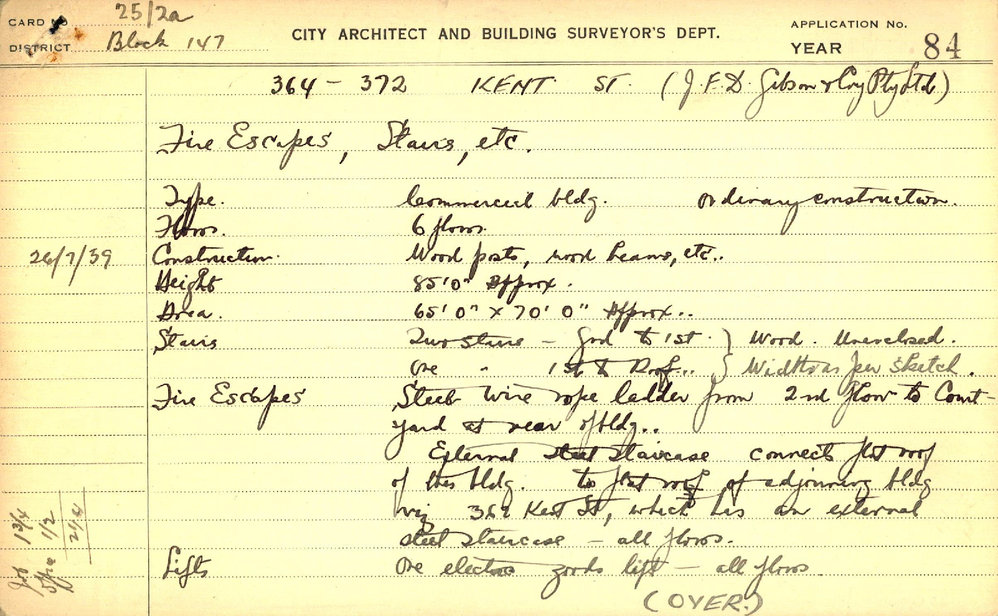 CARD No 25/2a
DISTRICT Block 147
CITY ARCHITECT AND BUILDING SURVEYOR'S DEPT.
APPLICATION No.
YEAR 84
364 - 372 KENT ST. (J.F.D. Gibson & Coy Pty Ltd)
Fire Escapes, Stairs, etc.
Type. Commercial bldg. Ordinary construction.
Floors. 6 floors.
26/7/39 Construction. Wood posts, wood beams, etc..
Height 85'0" Approx.
Area. 65'0" x 70'0" Approx..
Stairs Two stairs - Grd to 1st. } Wood. Unenclosed.
One " 1st to Roof.. } Widths as per sketch.
Fire Escapes Steel wire rope ladder from 2nd floor to Court-
yard at rear of bldg..
External steel staircase connects flat roof
of this bldg. to flat roof of adjoining bldg
viz 362 Kent St, which has an external
steel staircase - all floors.
Lifts One electric goods lift - all floors
(OVER.)
Job 1 3/4
1/2
2 1/4